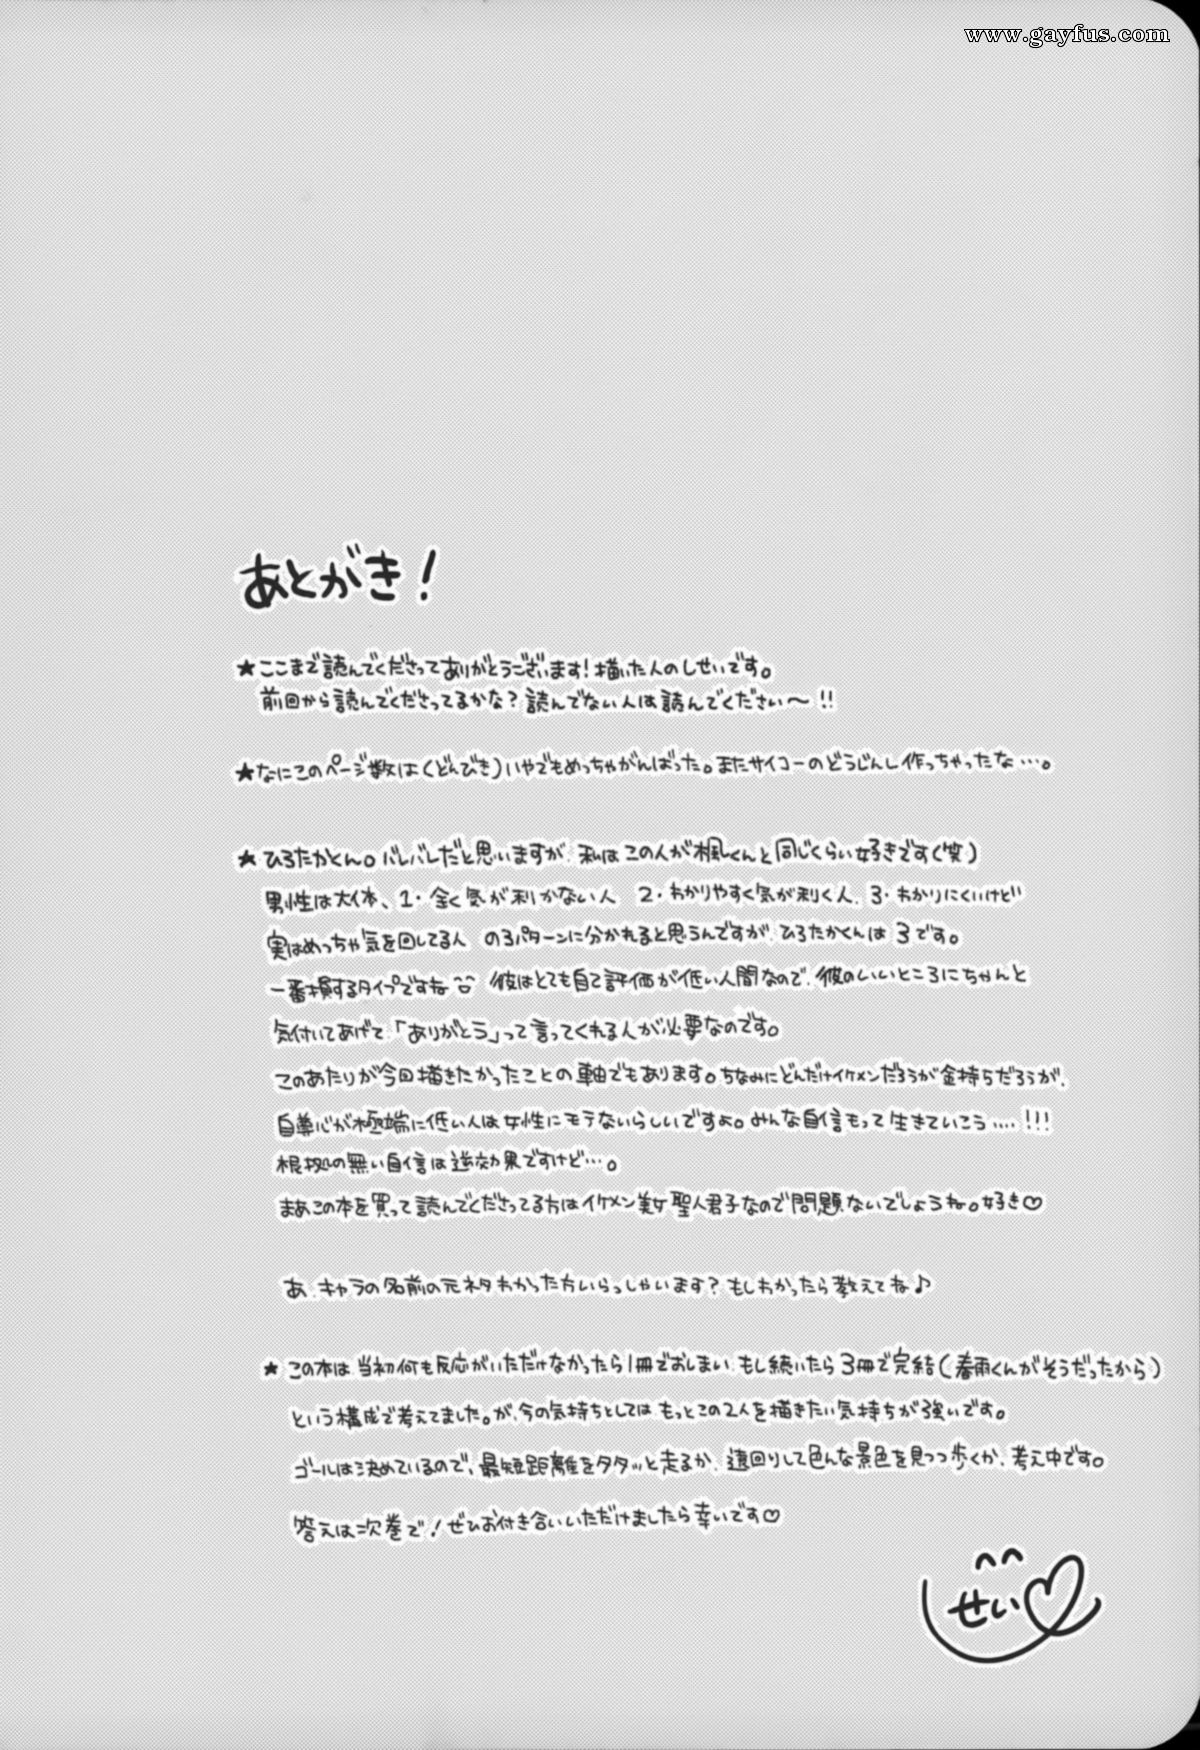 www.gayfus.com
あとがき！
★ここまで読んでくださってありがとうございます！描いた人のしせいです。
前回から読んでくださってるかな？読んでない人は読んでください〜!!
★なにこのページ数は(どんびき)いやでもめっちゃがんばった。またサイコーのどうじんし作っちゃったな…。
★ひろたかくん。バレバレだと思いますが、私はこの人が楓くんと同じくらい好きです(笑)
男性は大体、1・全く気が利かない人 2・わかりやすく気が利く人、3・わかりにくいけど
実はめっちゃ気を回してる人 の3パターンに分かれると思うんですが、ひろたかくんは3です。
一番損するタイプですね 彼はとても自己評価が低い人間なので、彼のいいところにちゃんと
気付いてあげて、「ありがとう」って言ってくれる人が必要なのです。
このあたりが今回描きたかったことの軸でもあります。ちなみにどんだけイケメンだろうが金持ちだろうが、
自尊心が極端に低い人は女性にモテないらしいですよ。みんな自信もって生きていこう....!!!
根拠の無い自信は逆効果ですけど…。
まあこの本を買って読んでくださってる方はイケメン美女聖人君子なので問題ないでしょうね。好き♡
あ、キャラの名前の元ネタわかった方いらっしゃいます？もしわかったら教えてね♪
★この本は、当初何も反応がいただけなかったら1冊でおしまい、もし続いたら3冊で完結(春雨くんがそうだったから)
という構成で考えてました。が、今の気持ちとしては、もっとこの2人を描きたい気持ちが強いです。
ゴールは決めているので、最短距離をタタッと走るか、遠回りして色んな景色を見つつ歩くか、考え中です。
答えは次巻で！ぜひお付き合いいただけましたら幸いです♡
せい♡